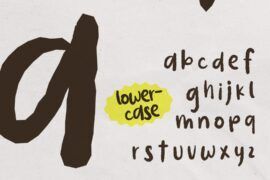 a
lower-
case
abcdef
ghijkl
mnopq
rstuvwxyz